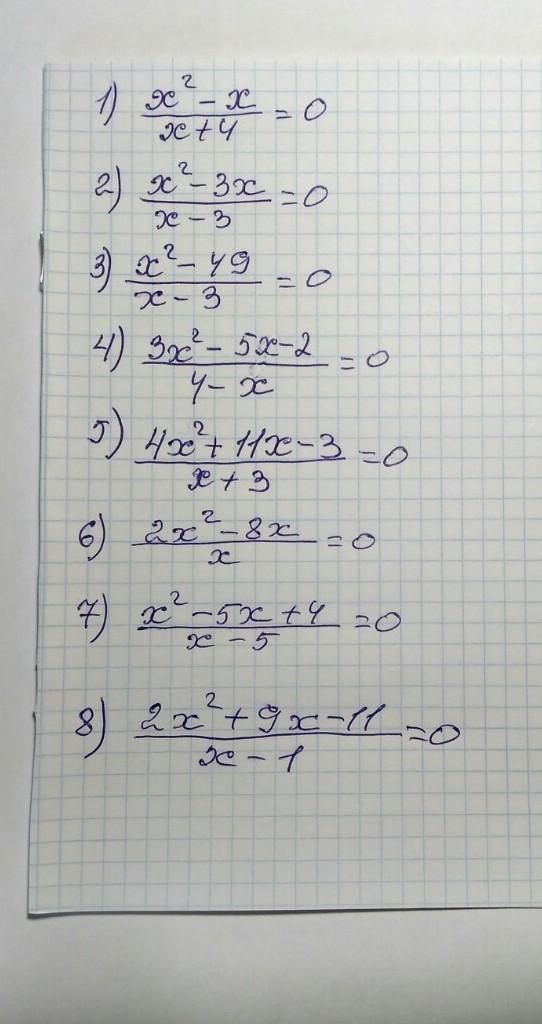 1) (x² - x)/(x + 4) = 0
2) (x² - 3x)/(x - 3) = 0
3) (x² - 49)/(x - 3) = 0
4) (3x² - 5x - 2)/(4 - x) = 0
5) (4x² + 11x - 3)/(x + 3) = 0
6) (2x² - 8x)/x = 0
7) (x² - 5x + 4)/(x - 5) = 0
8) (2x² + 9x - 11)/(x - 1) = 0